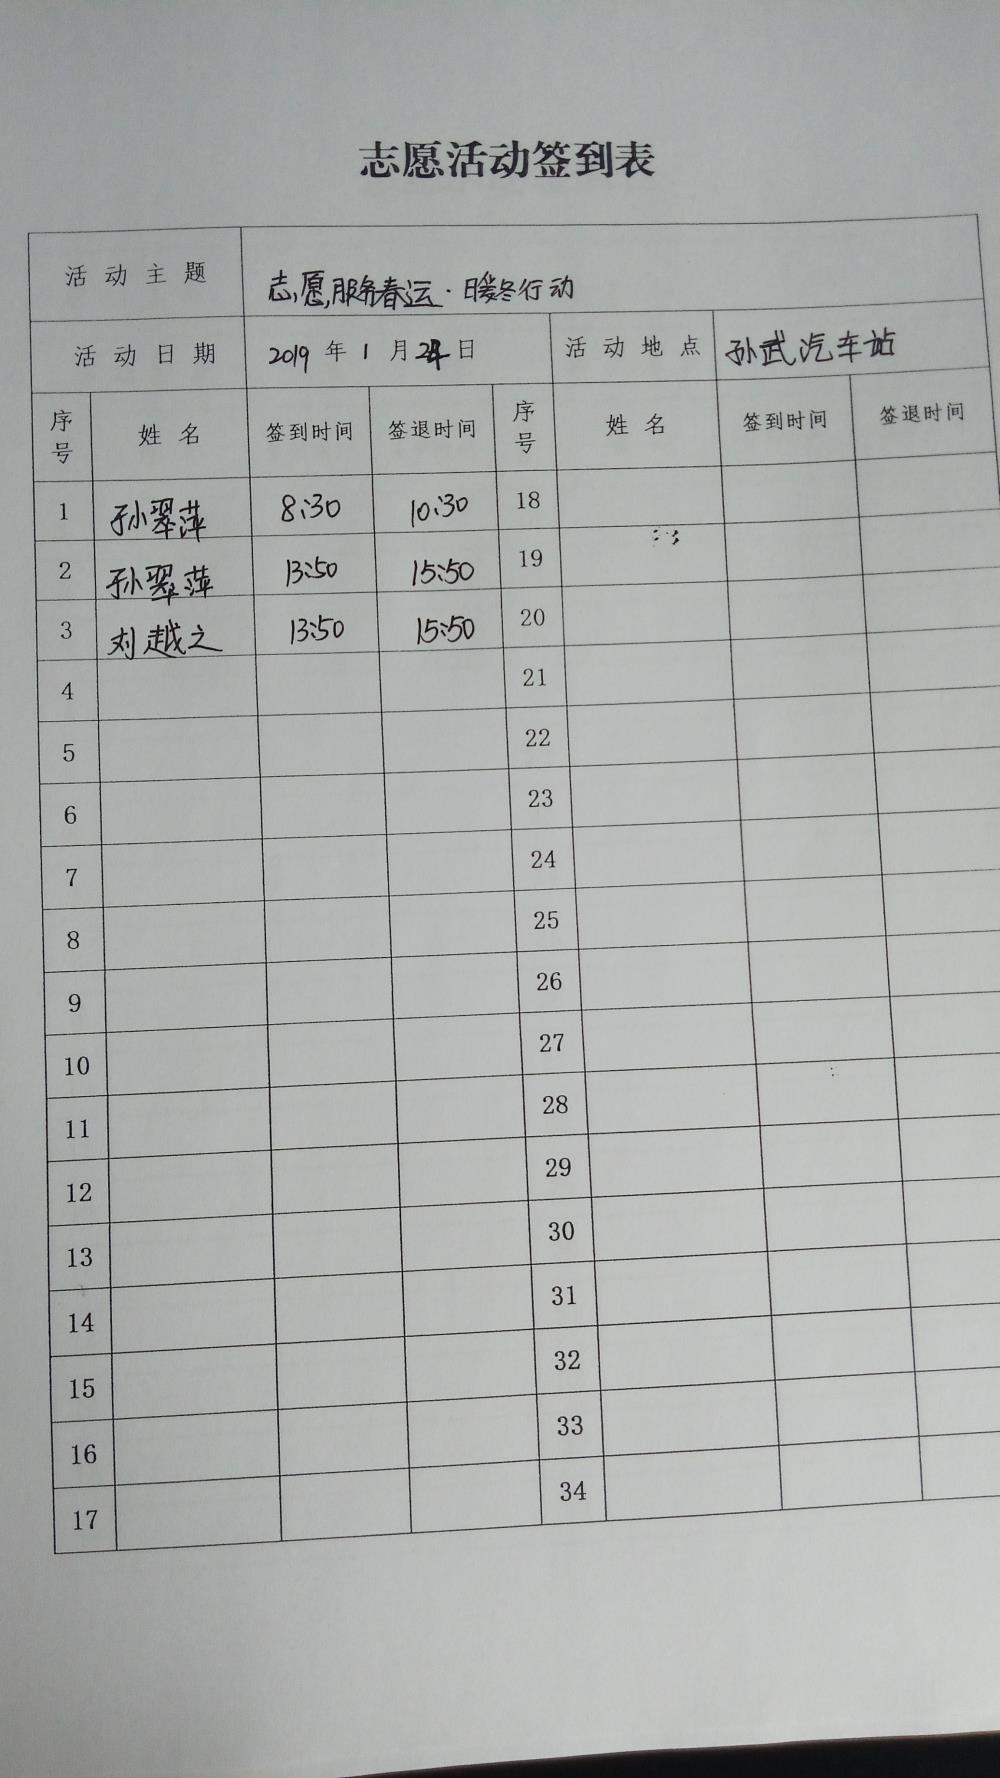 志愿活动签到表
活动主题 志愿服务春运·暖冬行动
活动日期 2019年1月24日 活动地点 孙武汽车站
序号 姓名 签到时间 签退时间 序号 姓名 签到时间 签退时间
1 孙翠萍 8:30 10:30 18
2 孙翠萍 13:50 15:50 19
3 刘越之 13:50 15:50 20
4 21
5 22
6 23
7 24
8 25
9 26
10 27
11 28
12 29
13 30
14 31
15 32
16 33
17 34